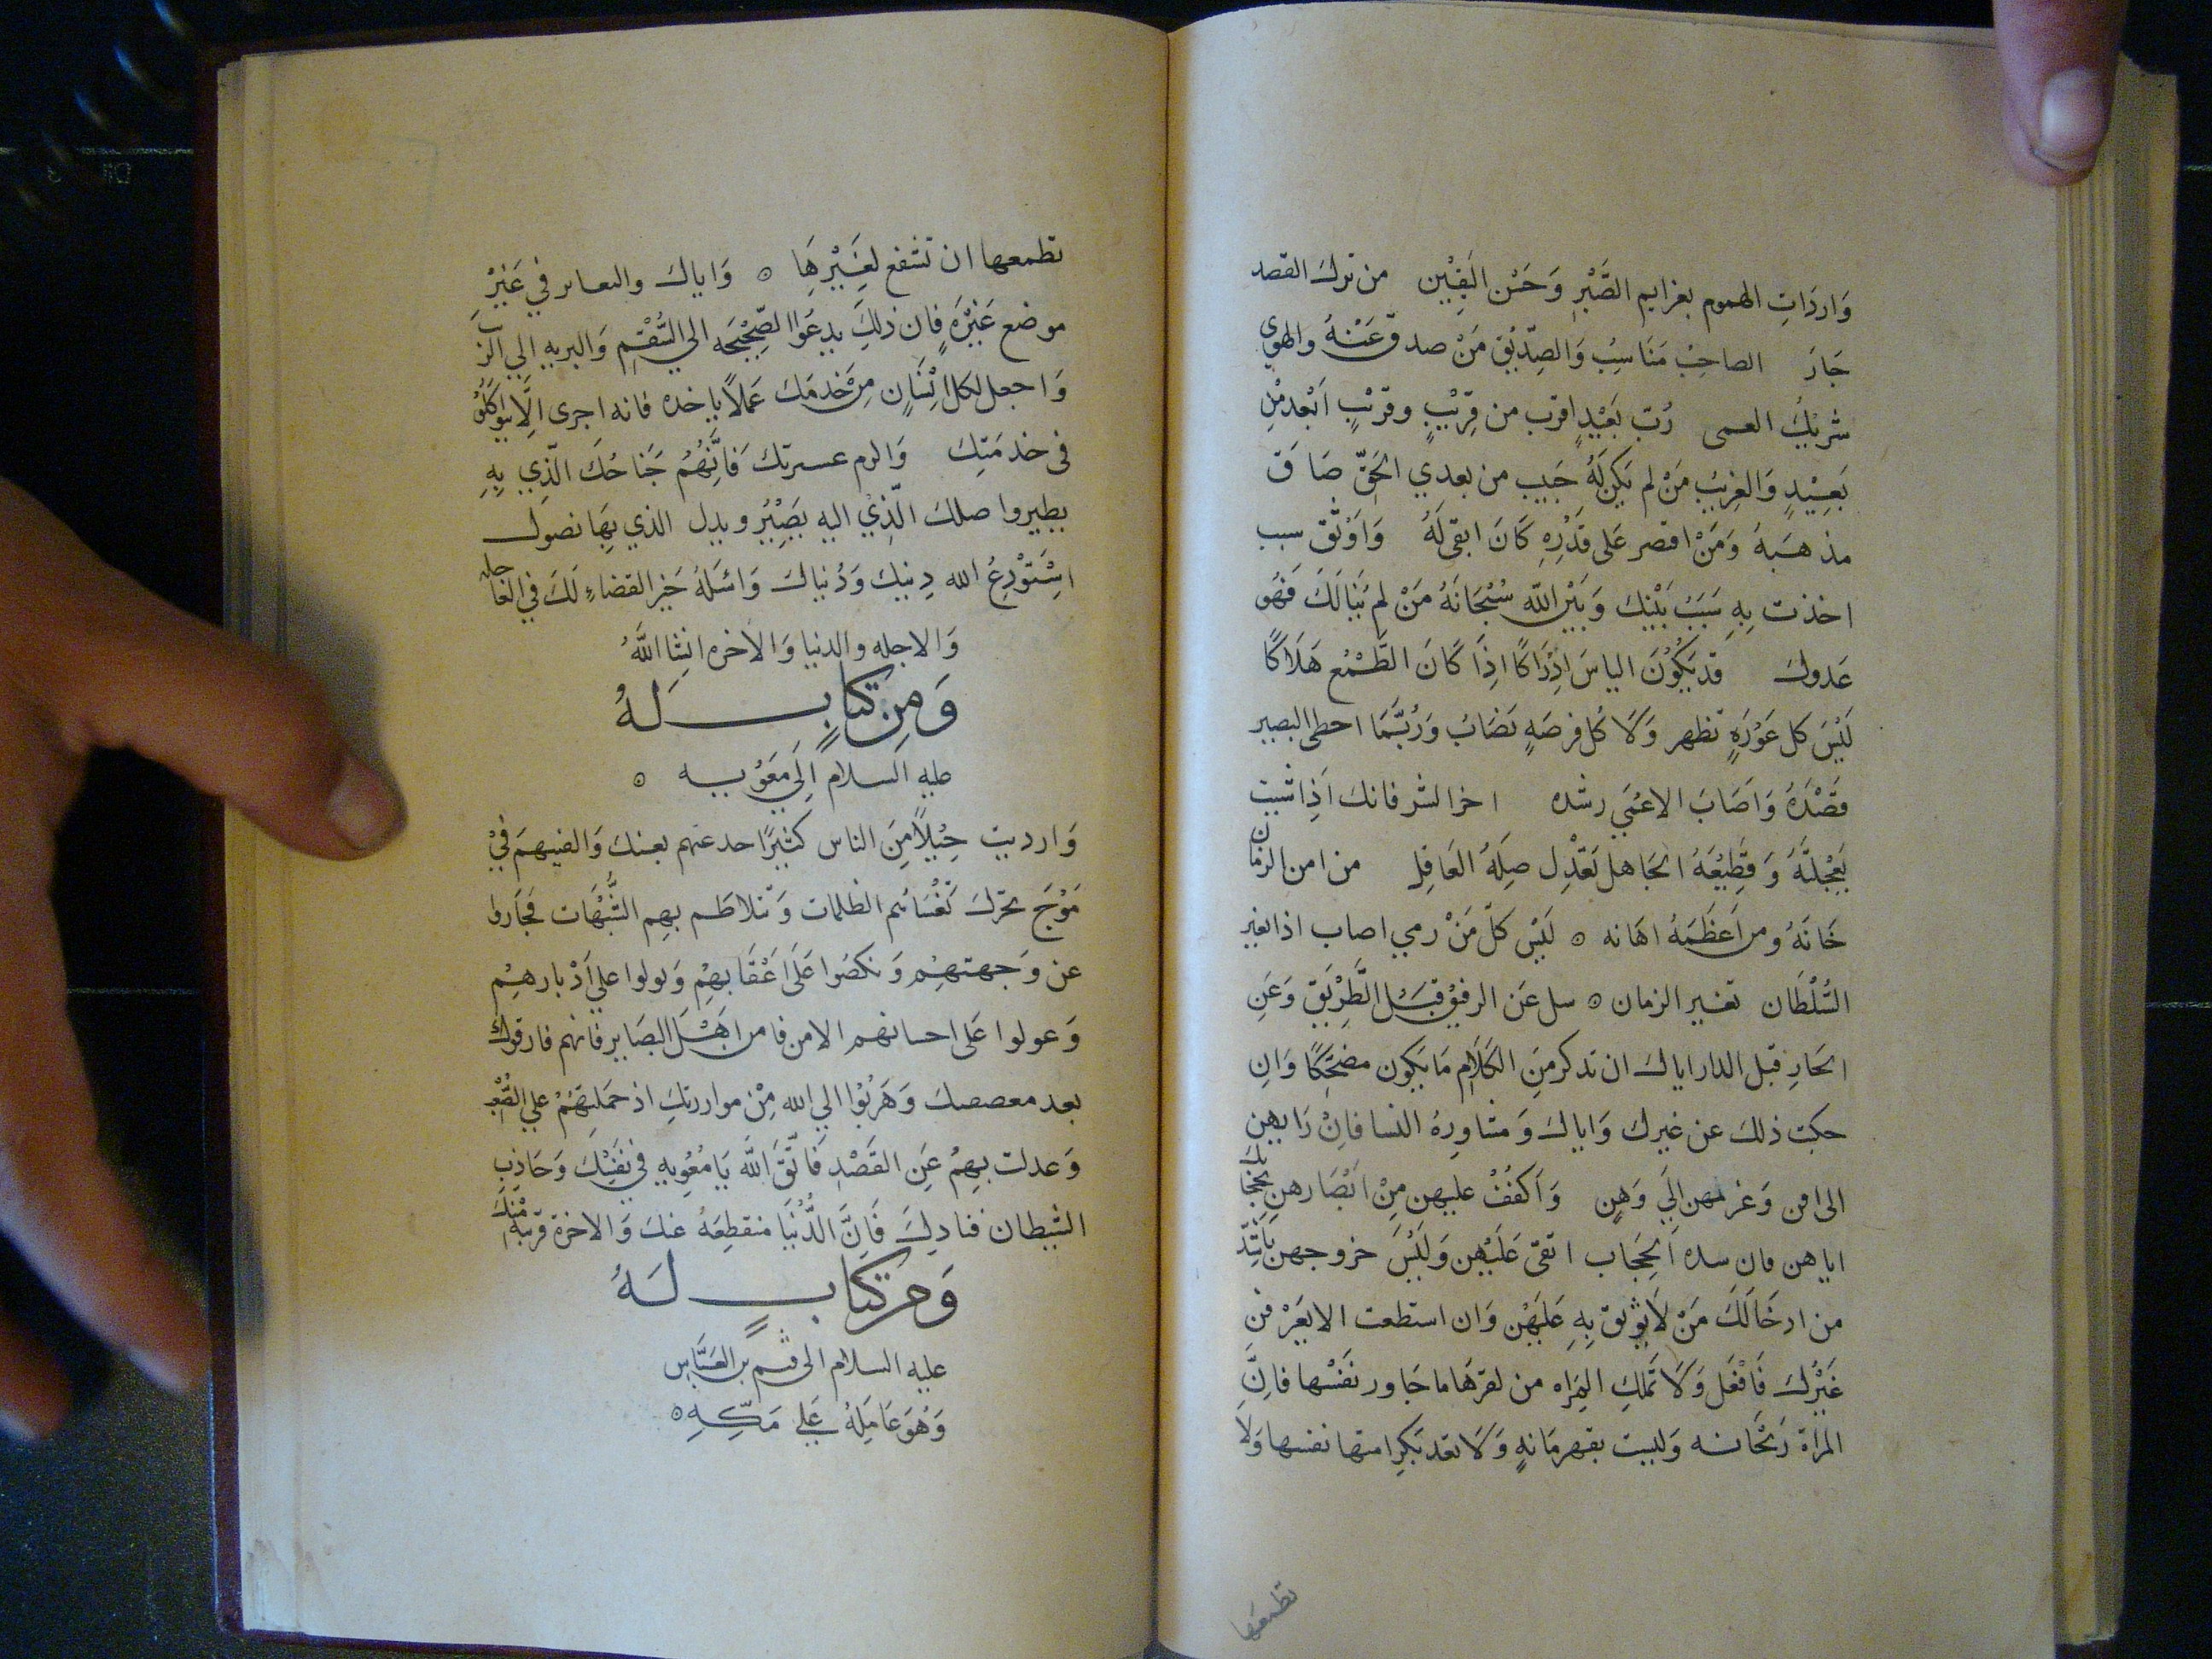 وَارِدَاتِ الهموم بعزايم الصَّبْرِ وَحَسْن اليَقِيْن من ترك القصد
جَارَ الصاحِبُ مَنَاسِبُ وَالصِدّيْق مَنْ صدق عَنْهُ والهوى
شريكُ العمى رُبّ بَعَيْدٍ اقرب من قِرِيْبٍ وقرْبٍ اَبْعد مْن
بَعِيْدٍ وَالغِرِيبُ مَنْ لم يَكن لَهُ حَبِيب من بعدي الحَقّ ضَاقَ
مذهَبهُ وَمَنْ اقصر عَلى قَدْرِهِ كَانَ ابقى لَهُ وَاوَثَق سبب
اخذت بِهِ سَبَبُ بَيْنِكَ وَبَيْن الله سُبْحَانَهُ مَنْ لم يُبَالَكَ فَهُو
عَدوك قد يَكُوْنَ الياسَ اِدْرَاكًا اِذَا كَانَ الطَّمْعُ هَلَاكًا
لَيْسَ كل عَوْرَةٍ تظهر وَلَا كُل فرصَهٍ تصَابُ وَرُبَّمَا اخطى البصير
قَصْدَهُ وَاَصَابَ الاعْمَي رشده اخر الشر فانك اَذِا شيت
تَعجْلتَهُ وَقطِيْعَهُ الجَاهل تَعْدْل صِلَهُ العَاقِل من امن الزمان
خَانَهُ ومن اَعظَمَهُ اهَانه ٥ لَيْس كلّ مَنْ رمي اصاب اذا تغير
السُلْطَان تغير الزمان ٥ سل عَن الرفيْق قبَل الطَّرِيَق وَعَنِ
الجَارِ قبل الدار اياك ان تذكر مِنَ الكَلَامِ مَا يَكون مضحَكًا وَانِ
حكيت ذلك عن غيرك وَاياك وَمشاورهُ النسا فاِنْ رَايهن
الى افن وَعزمهن الَي وَهنٍ وَاَكفُفْ عليهن مِنْ اَبْصَارهن بحجَابك
اياهن فان سده الَحِجَاب اتقى عَلَيْهن وَلَيْسَ خروجهن بَاَشَدّ
من ادخَالكَ مَنْ لَايوثق بِهِ عَلَيْهن وَان استطعت الا يَعَرْفنَ
غَيْرك فَافْعَل وَلَا تَملكِ المِرَاه من امرَهَا ما جَاور نَفَسْها فاِنَّ
المرَاة رَيْحَانه وَليست بقهرمَانهٍ وَلَا تعد بَكرِامتها نفسها وَلَا
تطمعها
تطمعها ان تشفع لِغَيْرِهَا ٥ وَاياك والتعاير في غَيْرْ
موضع غَيْرَهٍ فِان ذلِكَ يدعَوُا الصِّحْيَحَه الي السُّقْم وَالبريه اِلي الرّيَب
وَاجعل لكل اِنْسَانٍ مِنْ خَدمَكَ عَملَاً ياخده فانه اجرى الَّا يتواكَلُوُ
فى خدمَتِكَ وَالرم عسيرتك فَاِنَّهُمْ جَنَاحُكَ الّذِي بِهِ
يطير واصلك الّذِي اليه بَصِيْرُ ويدل الذي بِهَا تصَوُل
اسْتَوْدِعُ الله دِينكَ وَدُنياكَ وَاسَئَلهُ خَيْر القضاءِ لَكَ في العَاجله
وَالاجله والدنيا وَالاخره انشِا اللَّهُ
وَمِن كتابٍ لَهُ
عليه السلام اِلَي مَعَوُيه ٥
وَارديت جِيْلاً مِنَ الناس كَثيرًا خدعتهم بغيك وَالقيتهمَ فيْ
مَوْجَ بحرك تَغْشَاهم الظلمات وَتتلاطَم بهِم الشُّبُهَات فَجَاروا
عن وَجهتهِم وَنكصَوا عَلَى اعْقَابهِمْ وَلولوا علي اَدْبارهِمْ
وَعولوا عَلى احسابهم الا من فا من اهْل البصَاير فانهم فارقوك
بعد معرفتك وَهَرَبُوْا الي الله مِنْ موازرتكِ اذ حمَلتَهَمْ علي الصَّعْب
وَعدلت بهِمْ عَنِ القَصْدِ فَاتَّقَ اللّه يَا مُعُوِيه في نفَسِكَ وَجَاذِب
الشيطان قيادِكَ فَاِنَّ الدُّنْيَا منقطِعَهُ عنكَ وَالاخرة قريبة مْنكَ
وَمن كتابٍ لَهُ
عليه السلام الى قثم بن العَبَّاسِ
وَهُوَ عَامِلهُ عَلي مَكّهِ ٥